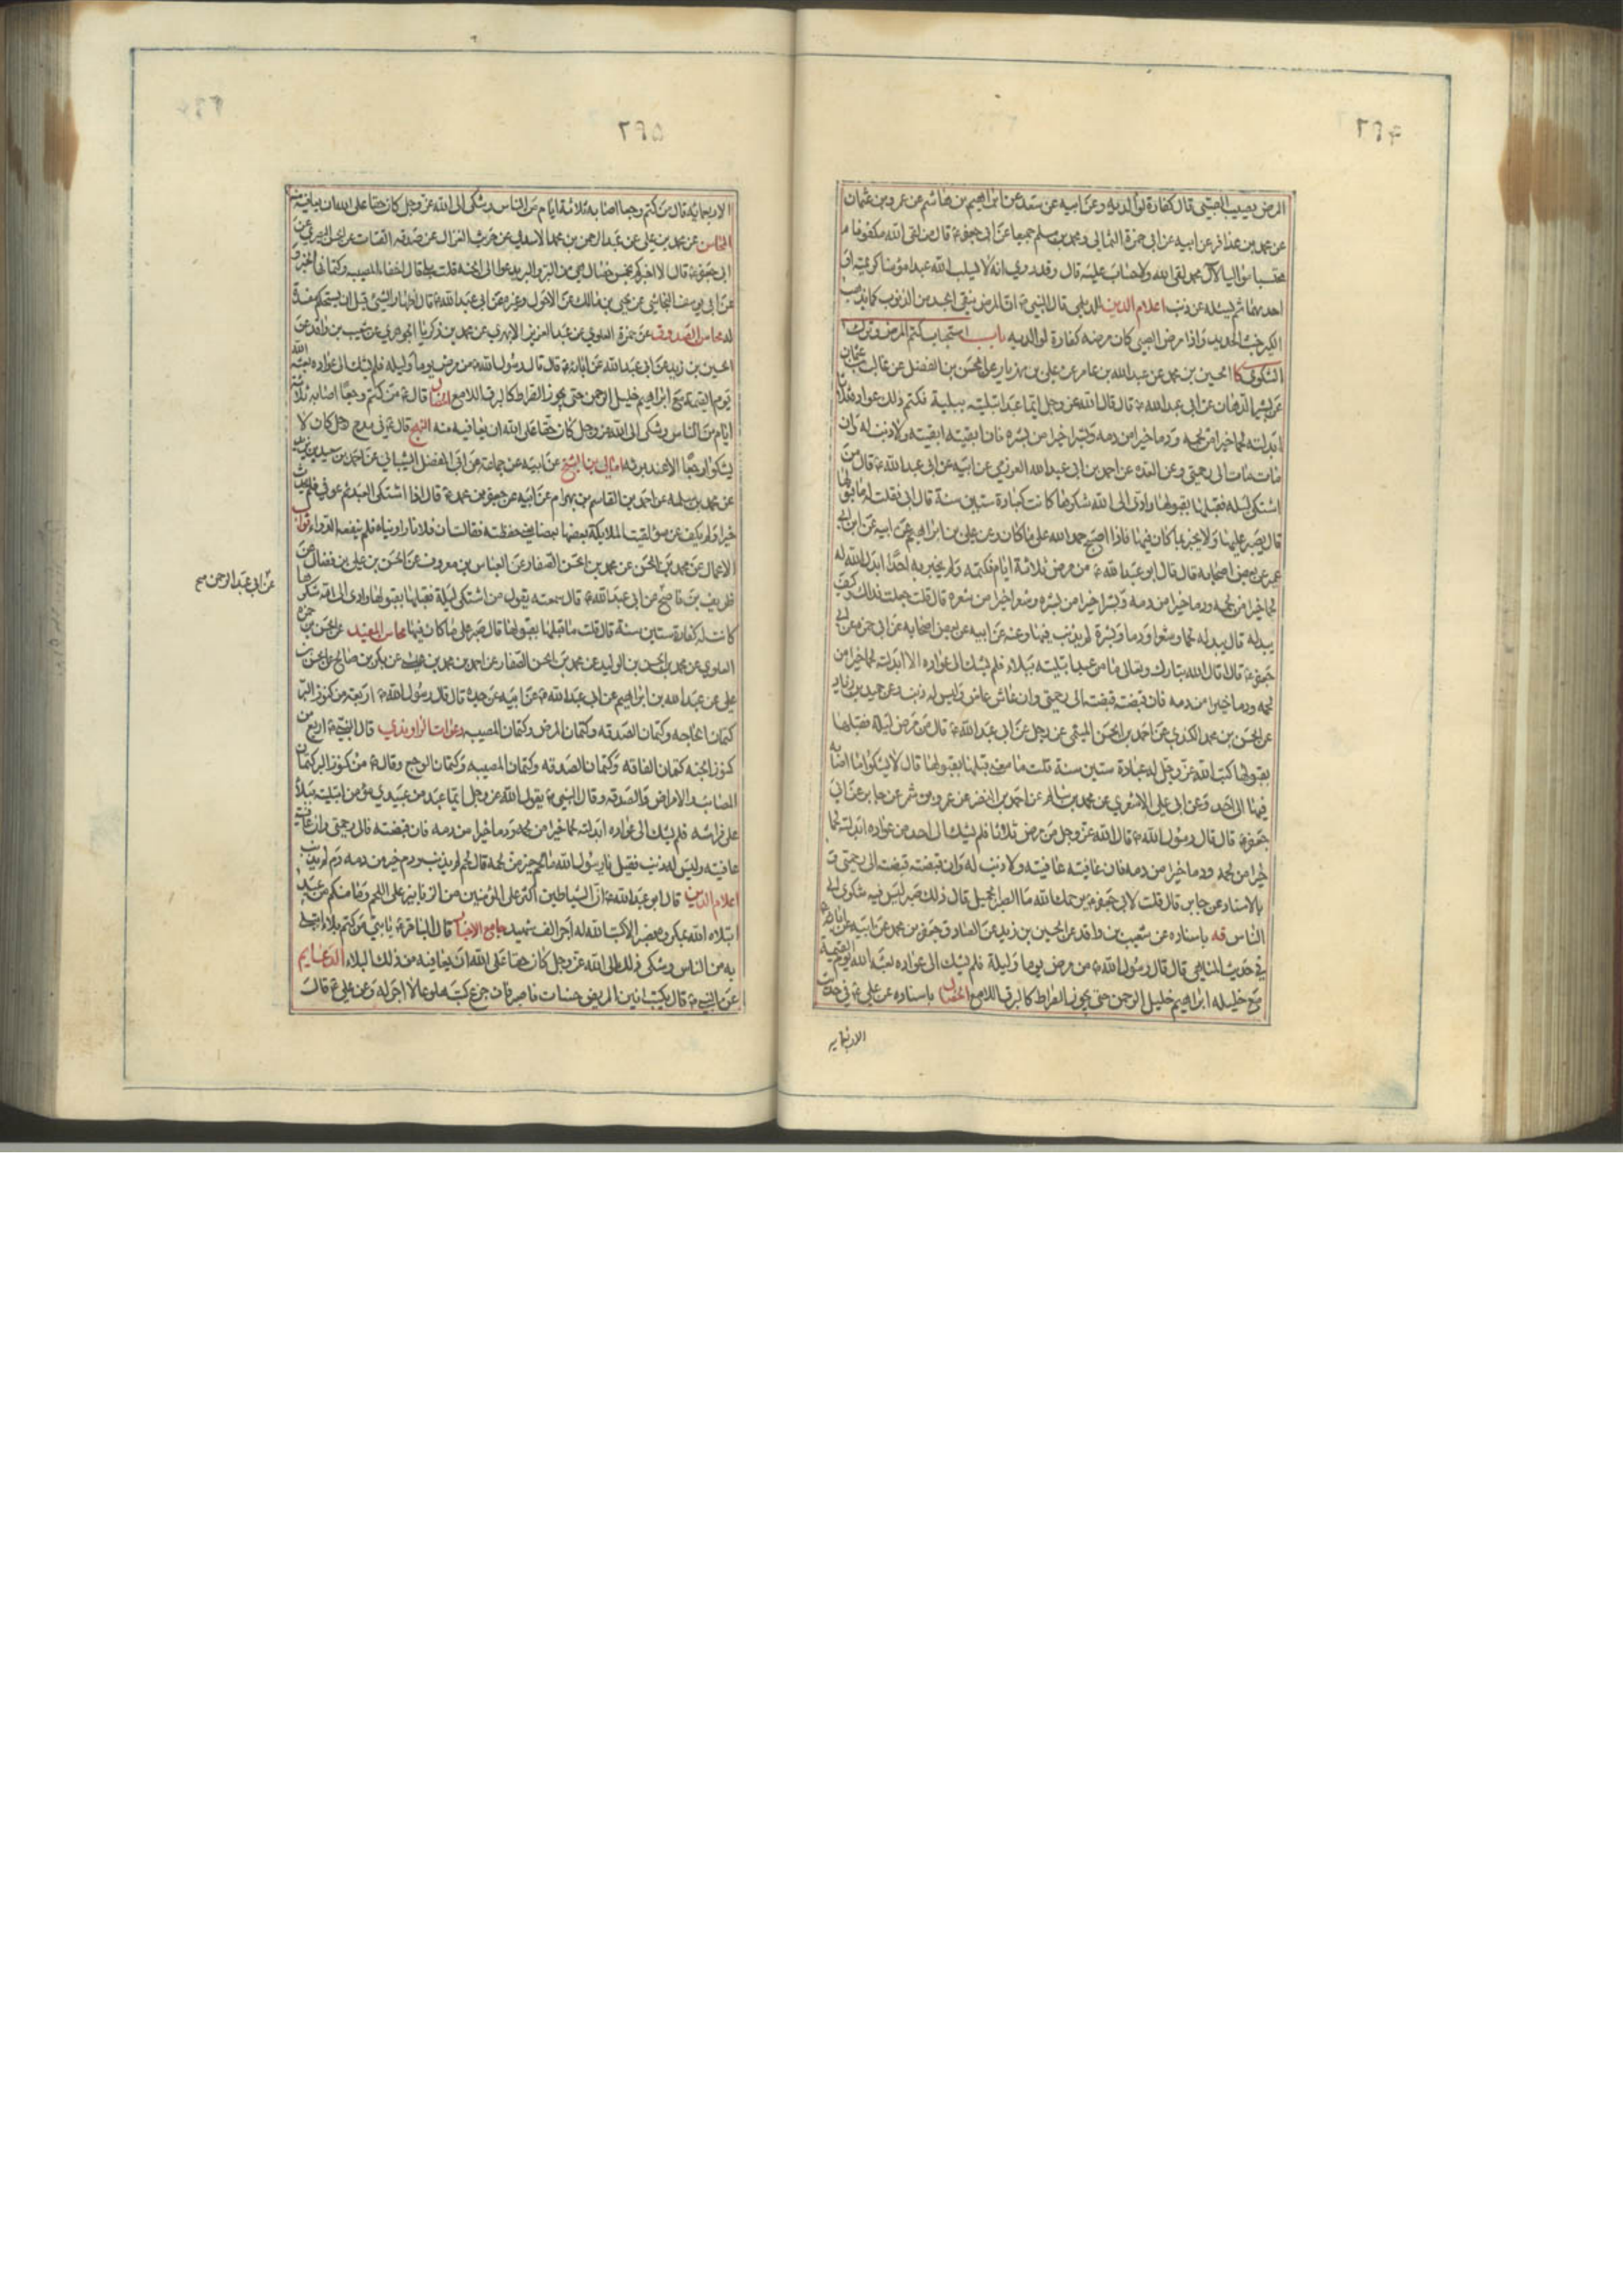 المرض يصيب الصبي قال كفارة لوالديه وعن ابيه عن سعد عن ابراهيم بن هاشم عن عمرو بن عثمان
عن محمد بن عذافر عن ابيه عن ابي حمزة الثمالي ومحمد بن مسلم جميعا عن ابي جعفر ع قال من لقى الله مكفوفا م
محتسبا مواليا لآل محمد لقى الله ولا حساب عليه قال وقد روي انه لا يسلب الله عبدا مؤمنا كريمتيه او
احديهما ثم يسئله عن ذنب اعلام الدين للديلمي قال النبي ص ان المرض ينقي الجسد من الذنوب كما يذهب
الكير خبث الحديد واذا مرض الصبي كان مرضه كفارة لوالديه باب استحباب كتم المرض وترك
الشكوى كا الحسين بن محمد عن عبد الله بن عامر عن علي بن مهزيار عن الحسن بن الفضل عن غالب بن عثمان
عن بشير الدهان عن ابي عبد الله ع قال قال الله عز وجل ايما عبد ابتليته ببلية فكتم ذلك عواده ثلاثا
ابدلته لحما خيرا من لحمه ودما خيرا من دمه وبشرا خيرا من بشره فان ابقيته ابقيته ولا ذنب له وان
مات مات الى رحمتي وعن العدة عن احمد بن ابي عبد الله العرزمي عن ابيه عن ابي عبد الله ع قال من
اشتكى ليلة فقبلها بقبولها وادى الى الله شكرها كانت كعبادة ستين سنة قال ابي فقلت له ما قبولها
قال يصبر عليها ولا يخبر بما كان فيها فاذا اصبح حمد الله على ما كان وعن علي بن ابراهيم عن ابيه عن ابن ابي
عمير عن بعض اصحابه قال قال ابو عبد الله ع من مرض ثلاثة ايام فكتمه ولم يخبر به احدا ابدل الله له
لحما خيرا من لحمه ودما خيرا من دمه وبشرا خيرا من بشره وشعرا خيرا من شعره قال قلت جعلت فداك وكيف
يبدله قال يبدله لحما وشعرا ودما وبشرة لم يذنب فيها وعنه عن ابيه عن بعض اصحابه عن ابي حمزة عن ابي
جعفر ع قال قال الله تبارك وتعالى ما من عبد ابتليته ببلاء فلم يشك الى عواده الا ابدلته لحما خيرا من
لحمه ودما خيرا من دمه فان قبضته قبضته الى رحمتي وان عاش عاش وليس له ذنب وعن حميد بن زياد
عن الحسن بن محمد الكندي عن احمد بن الحسن الميثمي عن رجل عن ابي عبد الله ع قال من مرض ليلة فقبلها
بقبولها كتب الله عز وجل له عبادة ستين سنة قلت ما معنى قبلها بقبولها قال لا يشكو ما اصابه
فيها الى احد وعن ابي علي الاشعري عن محمد بن سالم عن احمد بن النضر عن عمرو بن شمر عن جابر عن ابي
جعفر ع قال قال رسول الله ص قال الله عز وجل من مرض ثلاثا فلم يشك الى احد من عواده ابدلته لحما
خيرا من لحمه ودما خيرا من دمه فان عافيته عافيته ولا ذنب له وان قبضته قبضته الى رحمتي و
بالاسناد عن جابر قال قلت لابي جعفر ع يرحمك الله ما الصبر الجميل قال ذلك صبر ليس فيه شكوى الى
الناس قه باسناده عن شعيب بن واقد عن الحسين بن زيد عن الصادق جعفر بن محمد عن ابيه عن ابائه ع
في حديث المناهي قال قال رسول الله ص من مرض يوما وليلة فلم يشك الى عواده بعثه الله يوم القيمة
مع خليله ابراهيم خليل الرحمن حتى يجوز الصراط كالبرق اللامع الخصال باسناده عن علي ع في حديث
الاربعمايه
الاربعمايه قال من كتم وجعا اصابه ثلاثة ايام من الناس وشكى الى الله عز وجل كان حقا على الله ان يعافيه منه
المحاسن عن محمد بن علي عن عبد الرحمن بن محمد الاسدي عن حريث الغزال عن صدقة القتات عن الحسن البصري عن
ابي جعفر ع قال الا اخبركم بخمس خصال هي من البر والبر يدعوا الى الجنة قلت بلى قال اخفاء المصيبه وكتمانها الخبر و
عن ابي يوسف النجاشي عن يحيى بن مالك عن الاحول وغيره عن ابي عبد الله ع قال اظهار الشيء قبل ان يستحكم مفسدة
له مجالس الصدوق عن حمزة العلوي عن عبد العزيز الابهري عن محمد بن زكريا الجوهري عن شعيب بن واقد عن
الحسين بن زيد عن ابي عبد الله عن ابائه ع قال قال رسول الله ص من مرض يوما وليلة فلم يشك الى عواده بعثه الله
يوم القيمة مع ابراهيم خليل الرحمن حتى يجوز الصراط كالبرق اللامع الخصال قال ع من كتم وجعا اصابه ثلاثة
ايام من الناس وشكى الى الله عز وجل كان حقا على الله ان يعافيه منه النهج قال ع في مدح رجل كان لا
يشكو وجعا الا عند برئه امالي بن الشيخ عن ابيه عن جماعة عن ابي المفضل الشيباني عن احمد بن سعيد بن يزيد
عن محمد بن سلمة عن احمد بن القاسم بن بهرام عن ابيه عن جعفر بن محمد ع قال اذا اشتكى العبد ثم عوفي فلم يحدث
خيرا ولم يكف عن سوء لقيت الملايكة بعضها بعضا يعني حفظته فقالت ان فلانا داويناه فلم ينفعه الدواء ثواب
الاعمال عن محمد بن الحسن عن محمد بن الحسن الصفار عن العباس بن معروف عن الحسن بن علي بن فضال عن
ظريف بن ناصح عن ابي عبد الله ع قال سمعته يقول من اشتكى ليلة فقبلها بقبولها وادى الى الله شكرها
عن ابي عبد الرحمن صح
كانت له كفارة ستين سنة قال قلت ما قبلها بقبولها قال صبر على ما كان فيها مجالس المفيد عن الحسن بن حمزة
العلوي عن محمد بن الحسن بن الوليد عن محمد بن الحسن الصفار عن احمد بن محمد بن عيسى عن بكر بن صالح عن الحسن بن
علي عن عبد الله بن ابراهيم عن ابي عبد الله ع عن ابيه عن جده قال قال رسول الله ص اربعة من كنوز البر
كتمان الحاجه وكتمان الصدقه وكتمان المرض وكتمان المصيبه دعوات الراوندي قال النبي ص اربع من
كنوز الجنه كتمان الفاقه وكتمان الصدقه وكتمان المصيبه وكتمان الوجع وقال ع من كنوز البر كتمان
المصائب والامراض والصدقه وقال النبي ص يقول الله عز وجل ايما عبد من عبيدي مؤمن ابتليته ببلاء
على فراشه فلم يشك الى عواده ابدلته لحما خيرا من لحمه ودما خيرا من دمه فان قبضته فالى رحمتي وان عافيته
عافيته وليس له ذنب فقيل يا رسول الله ما لحم خير من لحمه قال لحم لم يذنب ودم خير من دمه دم لم يذنب
اعلام الدين قال ابو عبد الله ع ان الشياطين اكثر على المؤمنين من الزنابير على اللحم وما منكم من عبد
ابتلاه الله بمكروه فصبر الا كتب الله له اجر الف شهيد جامع الاخبار قال الباقر ع يا بني من كتم بلاء ابتلي
به من الناس وشكى ذلك الى الله عز وجل كان حقا على الله ان يعافيه من ذلك البلاء الدعايم
عن النبي ص قال يكتب انين المريض حسنات ما صبر فان جزع كتب هلوعا لا اجر له وعن علي ع قال